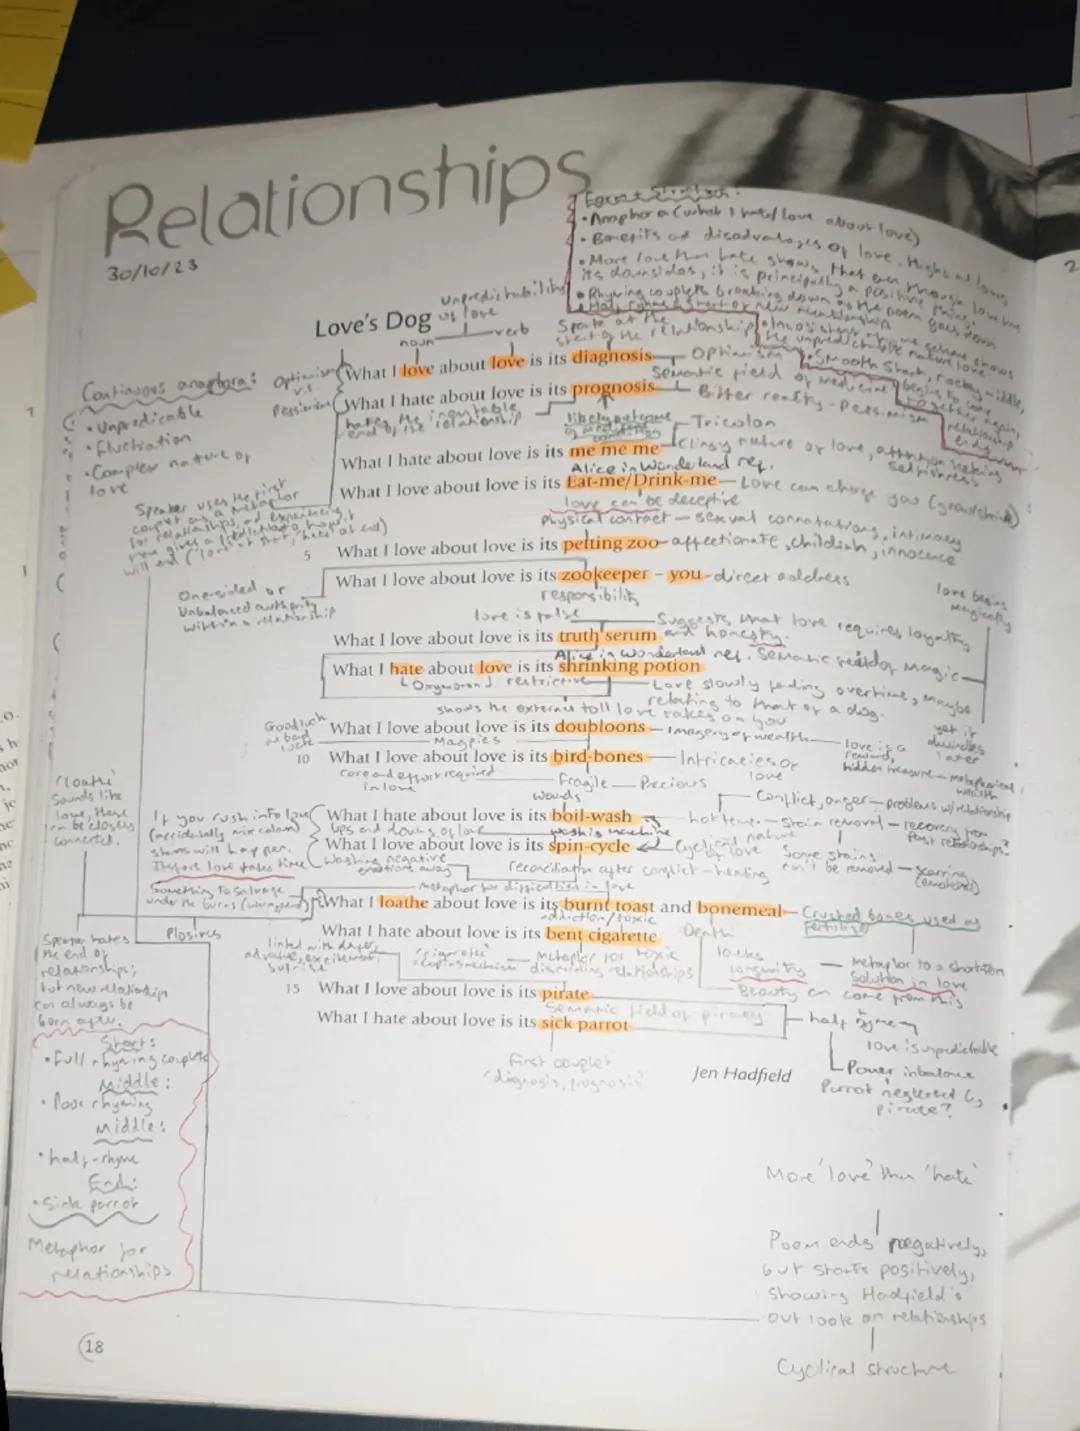 Relationships
30/10/23
Form + Structure:
• Anaphora (what I hate/love about love)
• Benefits and disadvantages of love. Highs and lows
• More love than hate shows that even through love has
its downsides, it is principally a positive thing.
• Rhyming couplets breaking down as the poem goes down
• Inconsistent rhyme scheme shows
the unpredictable nature love
• Smooth start, rocky middle,
begins to come
together again,
relationship
ends
unpredictability
of love
Love's Dog
noun
verb
Spark at the
start of the relationship
Optimism
v.s
Pessimism
What I love about love is its diagnosis
Optimism
Semantic field of medicine
What I hate about love is its prognosis
Bitter reality - Pessimism
hates the inevitable
end of the relationship
likely outcome
of medical
condition
Continuous anaphora:
• Unpredicable
• Fluctration
• Complex nature of
love
Tricolon
What I hate about love is its me me me
Clingy nature of love, attention seeking
Selfishness
Alice in Wonderland ref.
What I love about love is its Eat-me/Drink-me
Love can change you (grow/shrink)
love can be deceptive
Speaker uses the first
couplet as a metaphor
for relationships, and experiencing
will end ('love' at start, 'hate' at end)
physical contact - sexual connotations, intimacy
5 What I love about love is its petting zoo
affectionate, childish, innocence
What I love about love is its zookeeper – you
direct address
responsibility
One-sided or
Unbalanced authority
within a relationship
love is false
Suggests that love requires loyalty
and honesty.
love begins
magically
What I love about love is its truth serum
Alice in Wonderland ref. Semantic field of magic
What I hate about love is its shrinking potion
Oxymoron
restrictive
Love slowly fading overtime, maybe
relating to that of a dog.
shows the external toll love takes on you
Good luck
or bad
luck
What I love about love is its doubloons
Imagery of wealth
love is a
reward,
hidden treasure - metaphorical
wealth
yet it
dwindles
later
Magpies
10 What I love about love is its bird-bones
Intricacies of
love
care and effort required
in love
Fragile
Precious
wounds
Conflict, anger - problems w/ relationship
'Loathe'
Sounds like
love, these
can be closely
connected.
If you rush into love
(accidentally mix colours)
stains will happen.
Therfore love takes time
What I hate about love is its boil-wash
hot temp. - Stain removal - recovery from
past relationships?
ups and downs of love
washing machine
What I love about love is its spin-cycle
Cyclical nature
of love
Some stains
can't be removed - scarring
(emotional)
Washing negative
emotions away
reconciliation after conflict - healing
metaphor for difficulties in love
Something to salvage
under the burns
What I loathe about love is its burnt toast and bonemeal
Crushed bones used as
fertiliser
addiction/toxic
Death
What I hate about love is its bent cigarette
Plosives
Speaker hates
the end of
relationships,
but new relationships
can always be
born after.
linked with danger,
adventure, excitement,
surprise
'cigarette'
- coping mechanism
metaphor for toxic
relationships
lacks
longevity
Metaphor to a short-term
solution in love
Beauty can come from this
15 What I love about love is its pirate
Semantic field of piracy
What I hate about love is its sick parrot
half rhyme
love is unpredictable
Power inbalance
Parrot neglected by
pirate?
First couplet
'diagnosis, prognosis'
Jen Hadfield
Start:
• Full rhyming couplets
Middle:
• Poor rhyming
Middle:
• half-rhyme
End:
• Sick parrot
Metaphor for
relationships
More 'love' than 'hate'
Poem ends negatively,
but starts positively,
showing Hadfield's
outlook on relationships
Cyclical structure
18